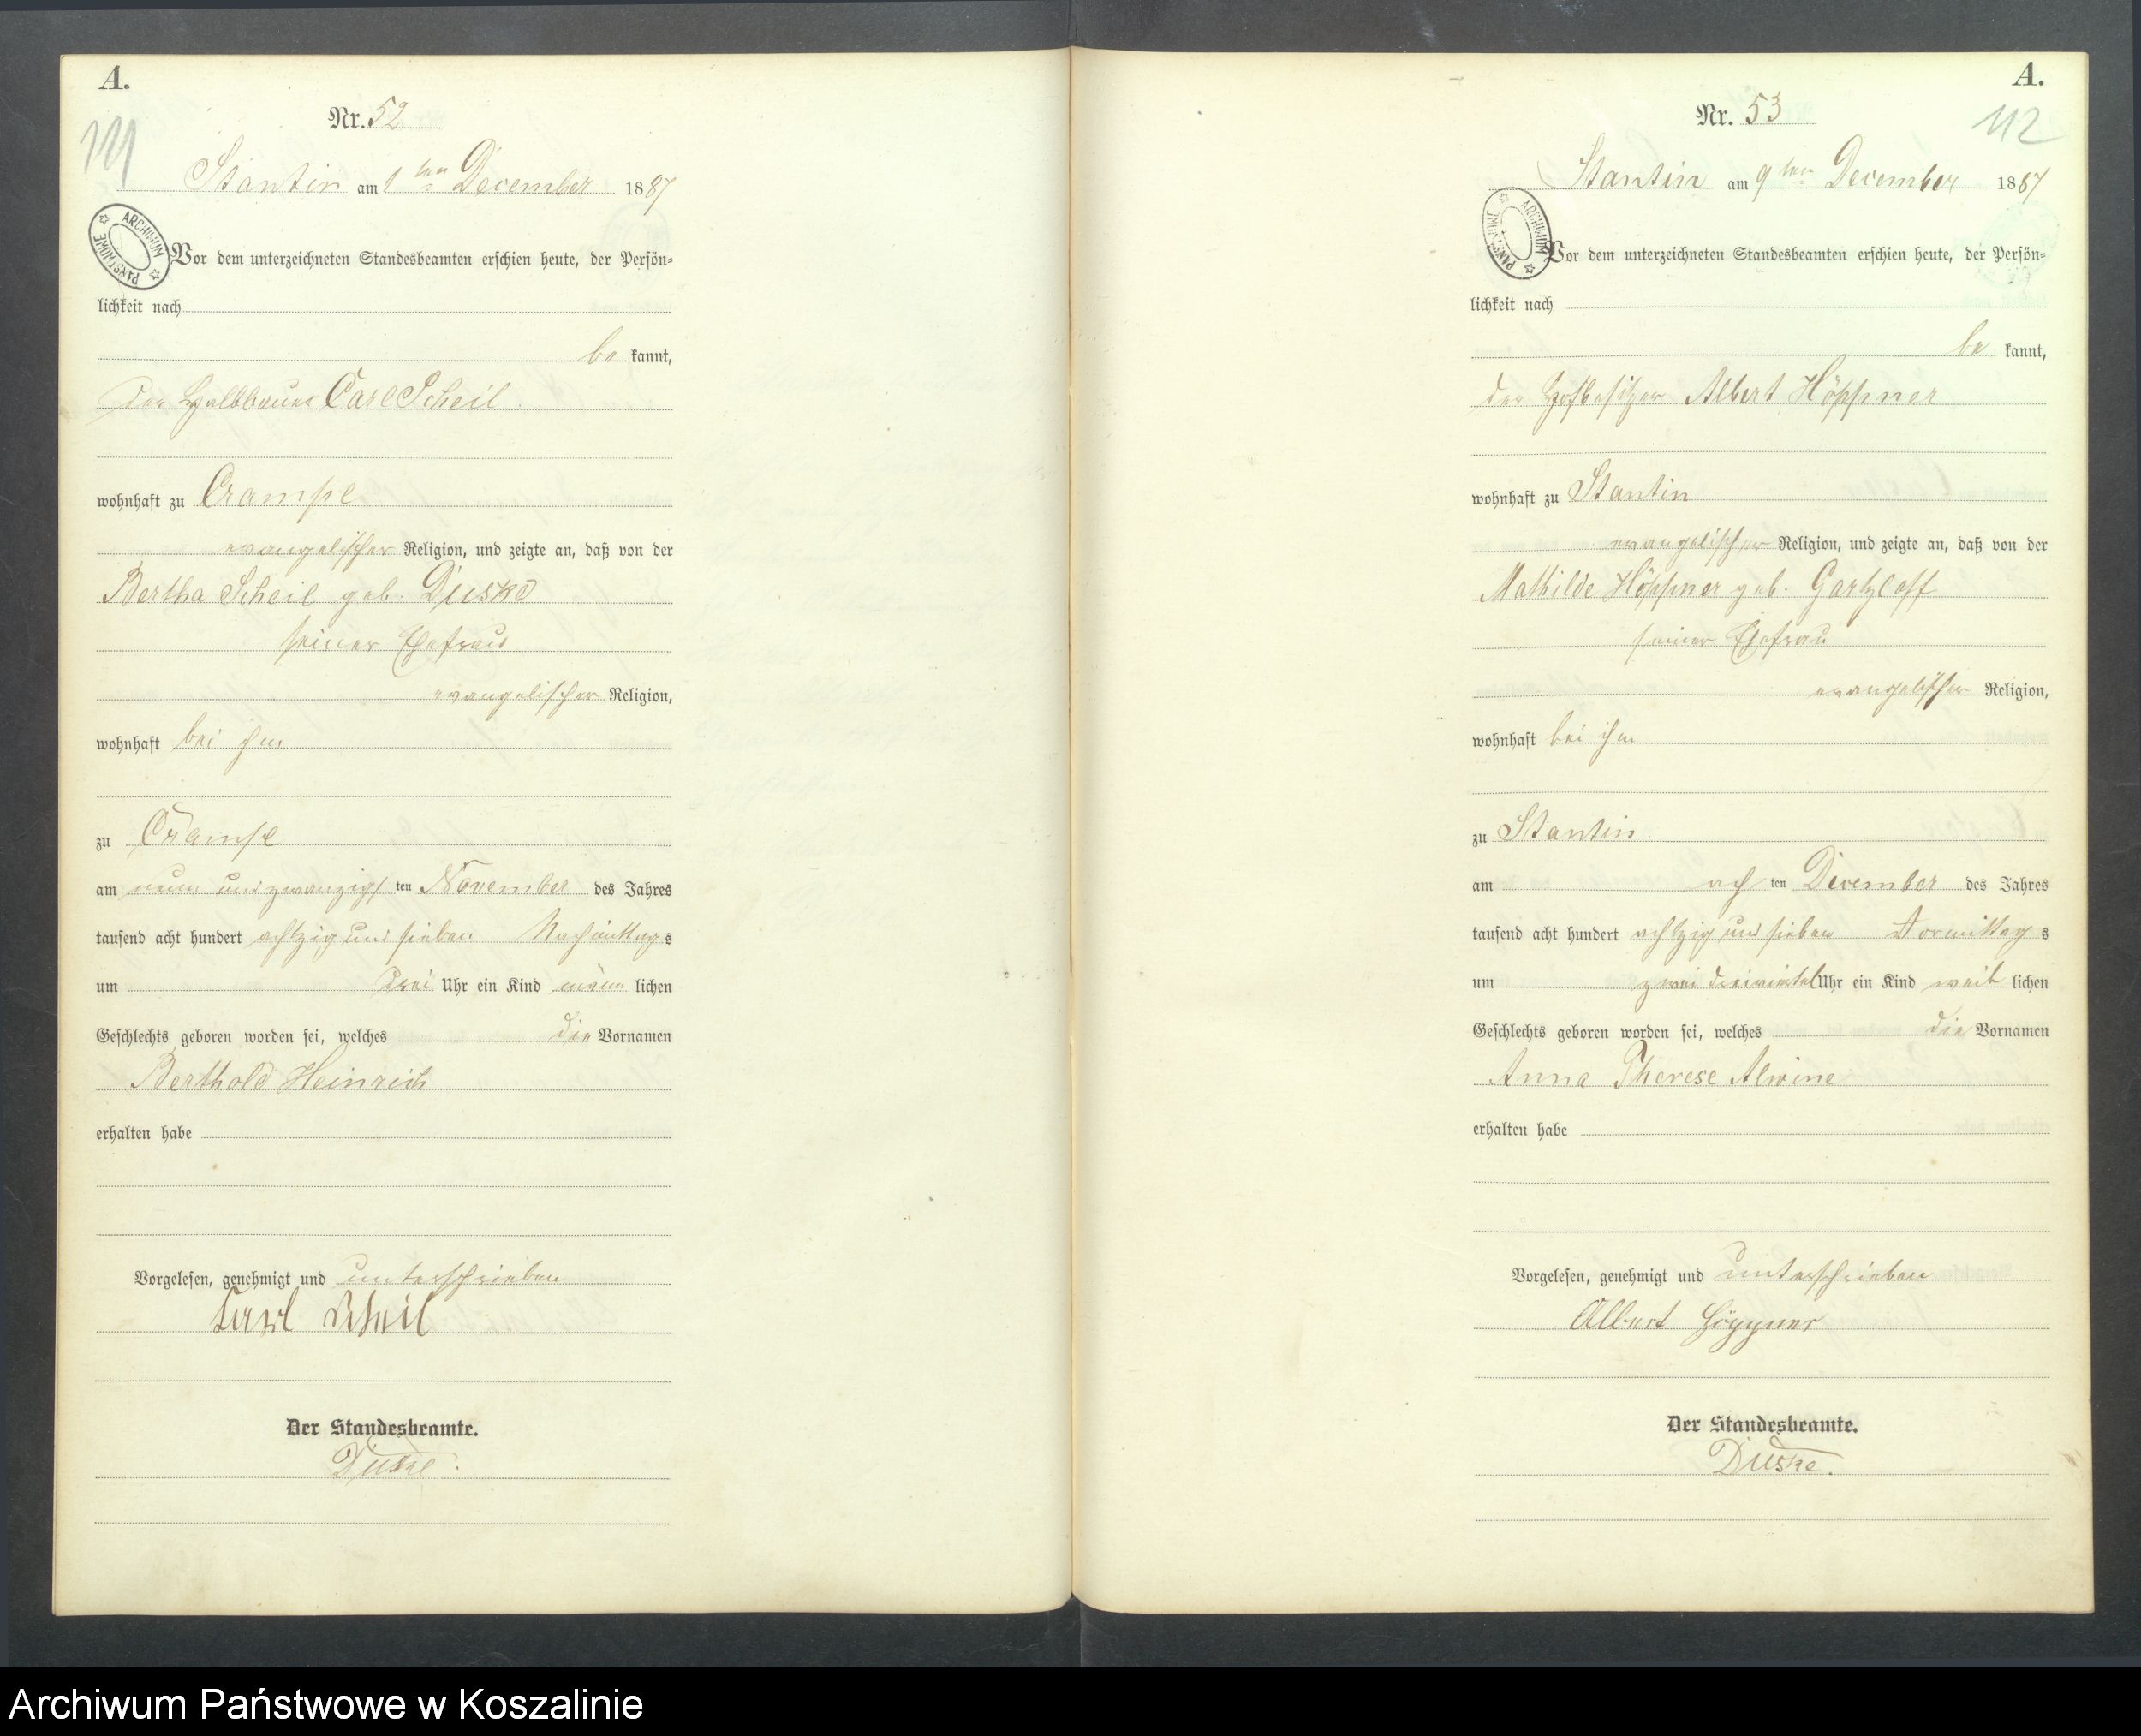 A.
Nr. 52
111
Stantin am 1ten December 1887
ARCHIWUM PAŃSTWOWE
Vor dem unterzeichneten Standesbeamten erschien heute, der Persön=
lichkeit nach
be kannt,
der Halbbauer Carl Scheil
wohnhaft zu Crampe
evangelischer Religion, und zeigte an, daß von der
Bertha Scheil geb. Duske
seiner Ehefrau
evangelischer Religion,
wohnhaft bei ihm
zu Crampe
am neun und zwanzigsten November des Jahres
tausend acht hundert achtzig und sieben Nachmittags
um drei Uhr ein Kind männlichen
Geschlechts geboren worden sei, welches die Vornamen
Berthold Heinrich
erhalten habe
Vorgelesen, genehmigt und unterschrieben
Karl Scheil
Der Standesbeamte.
Duske.
A.
Nr. 53
112
Stantin am 9ten December 1887
ARCHIWUM PAŃSTWOWE
Vor dem unterzeichneten Standesbeamten erschien heute, der Persön=
lichkeit nach
be kannt,
der Hofbesitzer Albert Höppner
wohnhaft zu Stantin
evangelischer Religion, und zeigte an, daß von der
Mathilde Höppner geb. Gartzloff
seiner Ehefrau
evangelischer Religion,
wohnhaft bei ihm
zu Stantin
am achten December des Jahres
tausend acht hundert achtzig und sieben Vormittags
um zwei dreiviertel Uhr ein Kind weiblichen
Geschlechts geboren worden sei, welches die Vornamen
Anna Therese Alwine
erhalten habe
Vorgelesen, genehmigt und unterschrieben
Albert Höppner
Der Standesbeamte.
Duske.
Archiwum Państwowe w Koszalinie